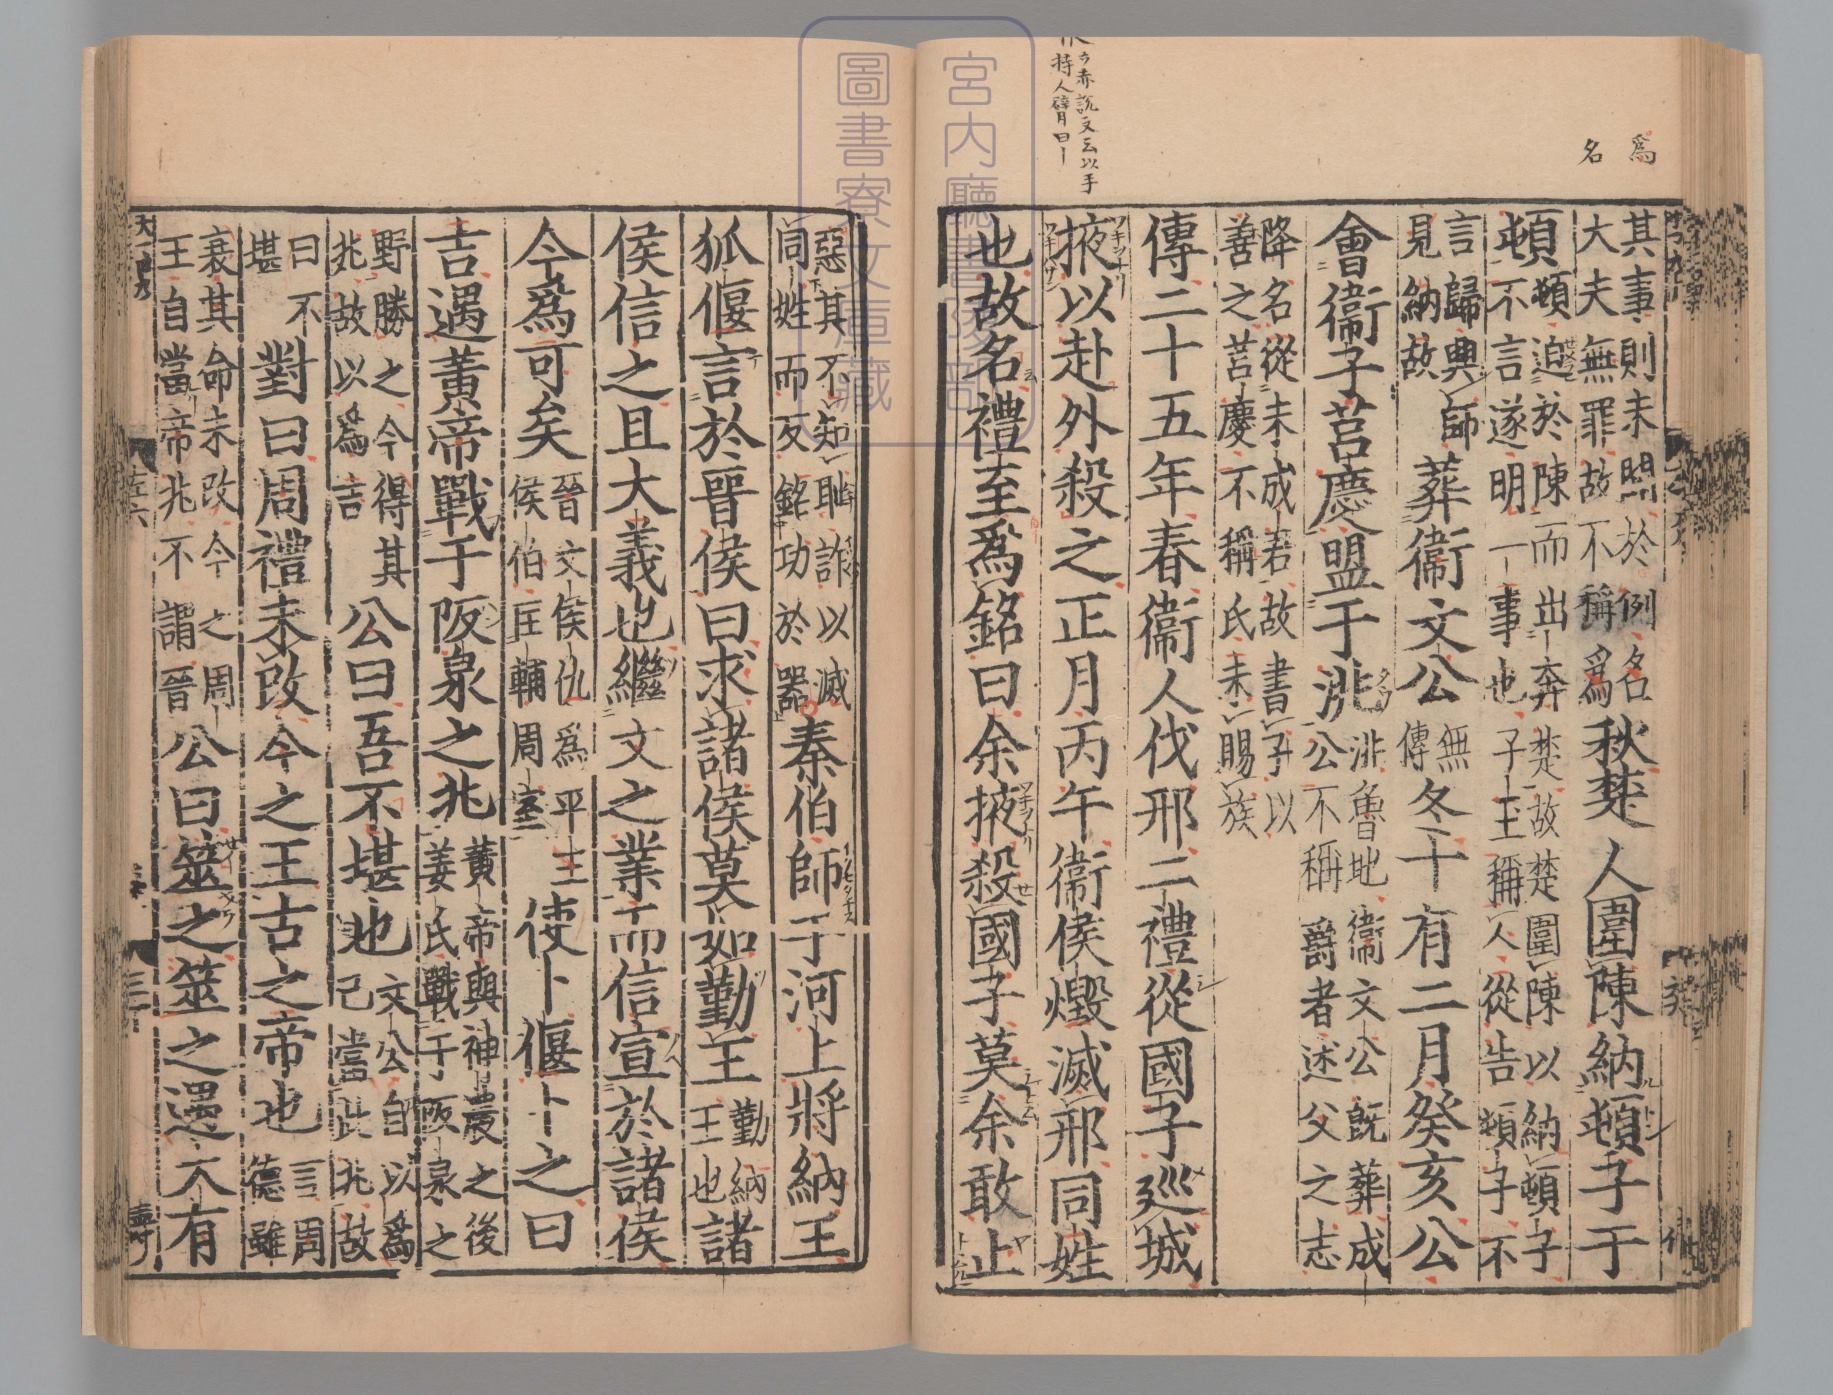 其事則未聞於例名
大夫無罪故不稱爲
秋楚人圍陳納頓子于
頓
頓迫於陳而出奔楚故楚圍陳以納頓子
不言遂明一事也子玉稱人從告頓子不
言歸與師
見納故
葬衞文公
無
傳
冬十有二月癸亥公
會衞子莒慶盟于洮
洮魯地衞文公既葬成
公不稱爵者述父之志
降名從未成君故書子以
善之莒慶不稱氏未賜族
傳二十五年春衞人伐邢二禮從國子巡城
掖以赴外殺之正月丙午衞侯燬滅邢同姓
也故名禮至爲銘曰余掖殺國子莫余敢止
惡其不知恥詐以滅
同姓而反銘功於器
秦伯師于河上將納王
狐偃言於晉侯曰求諸侯莫如勤王
勤納
王也
諸
侯信之且大義也繼文之業而信宣於諸侯
今爲可矣
晉文侯仇爲平王
侯伯匡輔周室
使卜偃卜之曰
吉遇黃帝戰于阪泉之兆
黃帝與神農之後
姜氏戰于阪泉之
野勝之今得其
兆故以爲吉
公曰吾不堪也
文公自以爲
己當此兆故
曰不
堪
對曰周禮未改今之王古之帝也
言周
德雖
衰其命未改今之周
王自當帝兆不謂晉
公曰筮之筮之遇大有
爲
名
左六
三
宮内廳書陵部
圖書寮文庫藏